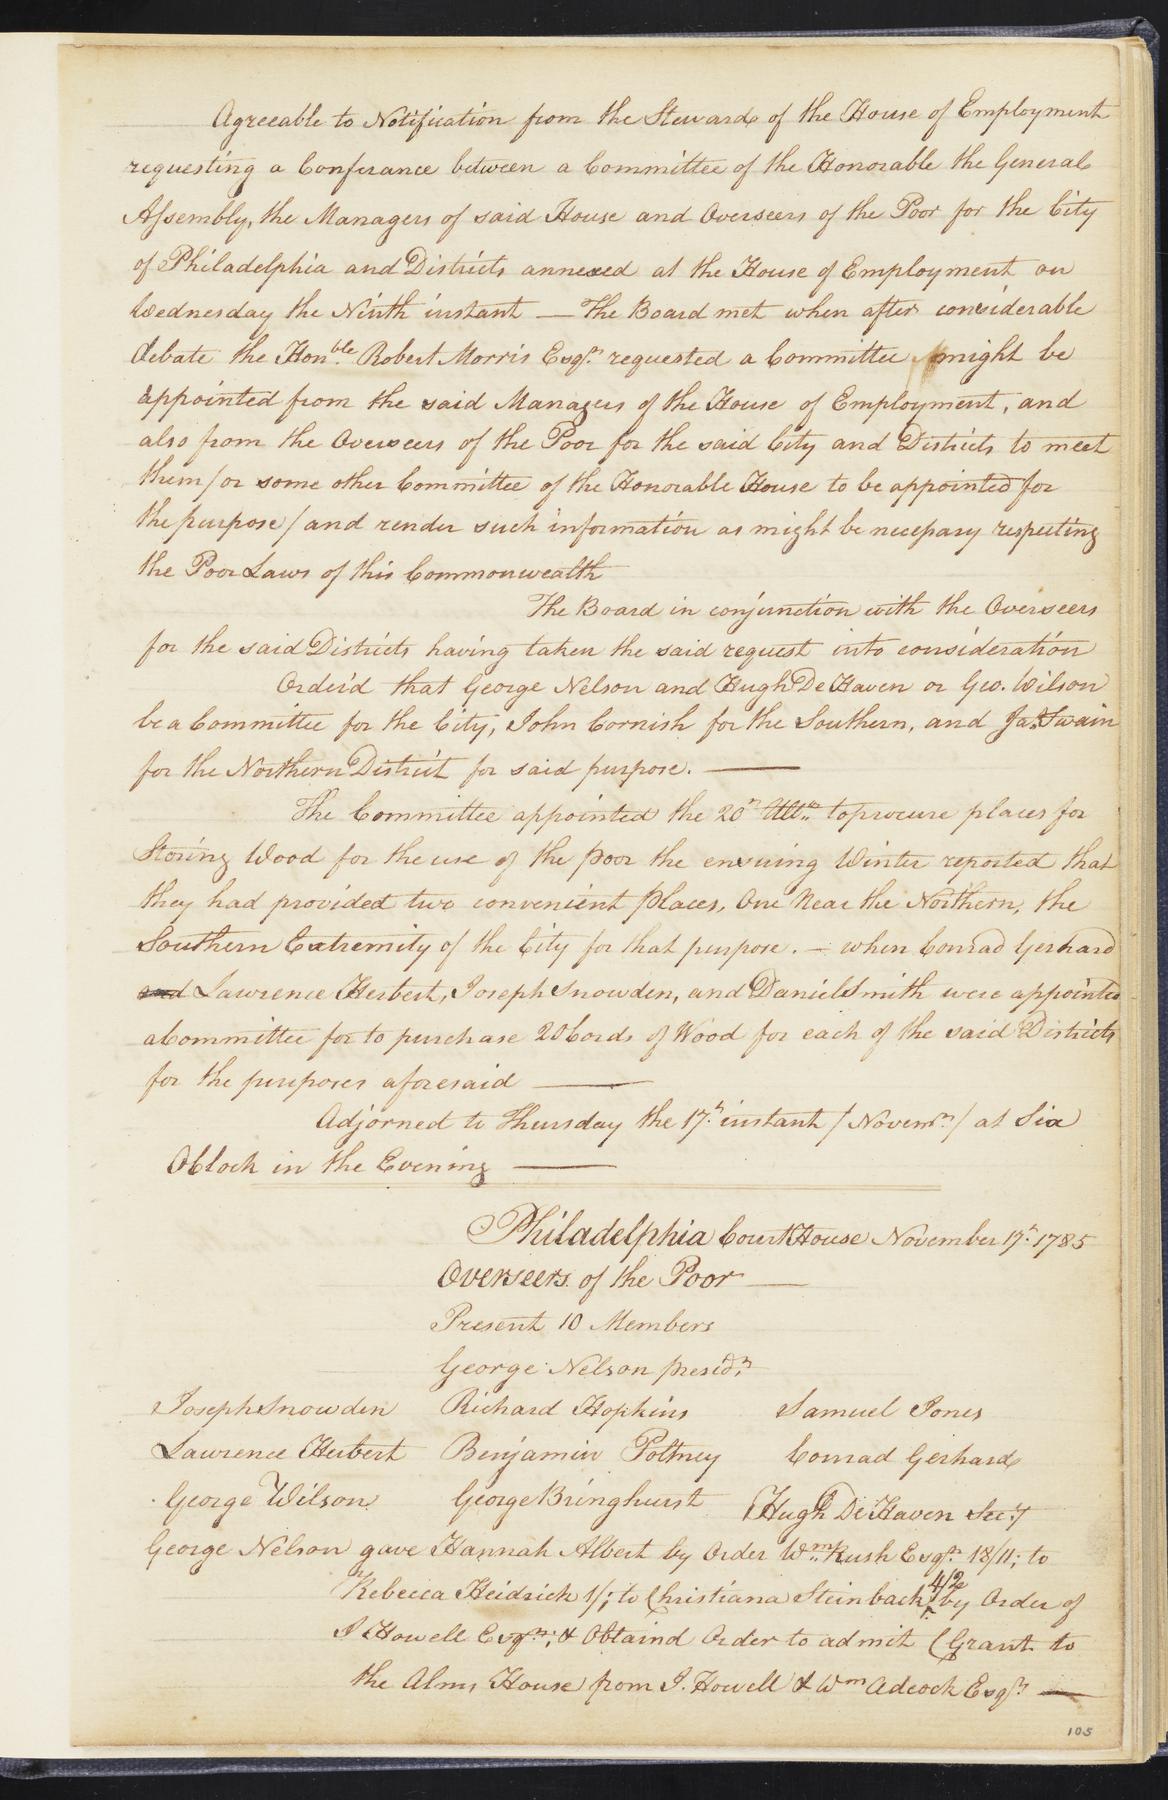 Agreeable to Notification from the Steward of the House of Employment
requesting a Conferance between a Committee of the Honorable the General
Assembly, the Managers of said House and Overseers of the Poor for the City
of Philadelphia and Districts annexed at the House of Employment on
Wednesday the Ninth instant — The Board met when after considerable
debate the Honble Robert Morris Esqr. requested a Committee might be
appointed from the said Managers of the House of Employment, and
also from the Overseers of the Poor for the said City and Districts to meet
them / or some other Committee of the Honorable House to be appointed for
the purpose / and render such information as might be necessary respecting
the Poor Laws of this Commonwealth
The Board in conjunction with the Overseers
for the said Districts having taken the said request into consideration
Order'd that George Nelson and Hugh De Haven or Geo. Wilson
be a Committee for the City, John Cornish for the Southern, and Jas. Swain
for the Northern District for said purpose. —
The Committee appointed the 20th Ultm. to procure places for
Storing Wood for the use of the poor the ensuing Winter reported that
they had provided two convenient places, One Near the Northern, the
Southern Extremity of the City for that purpose. — when Conrad Gerhard
and Lawrence Herbert, Joseph Snowden, and Daniel Smith were appointed
a Committee for to purchase 20 Cords of Wood for each of the said Districts
for the purposes aforesaid —
Adjorned to Thursday the 17th. instant / Novemr. / at Six
OClock in the Evening —
Philadelphia Court House November 17th. 1785
Overseers of the Poor —
Present 10 Members
George Nelson presidt.
Joseph Snowden Richard Hopkins Samuel Jones
Lawrence Herbert Benjamin Poltney Conrad Gerhard
George Wilson George Bringhurst Hugh De Haven Secy
George Nelson gave Hannah Albert by Order Wm. Rush Esqr. 18/11; to
Rebecca Heidrich 1/; to Christiana Steinbach 4/2 by Order of
J Howell Esqr.; & Obtaind Order to admit C Grant to
the Alms House from J. Howell & Wm Adcock Esqrs —
105